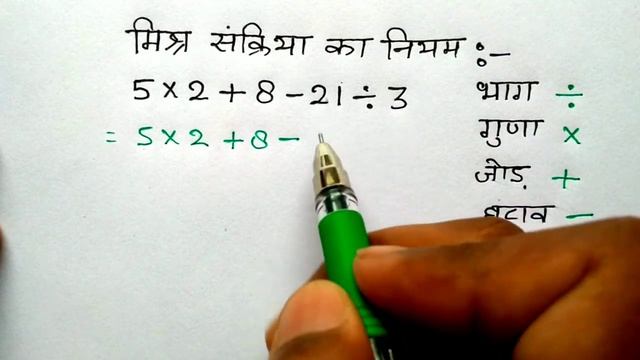 मिश्र संक्रिया का नियम :-
5 × 2 + 8 - 21 ÷ 3
= 5 × 2 + 8 -
भाग ÷
गुणा ×
जोड़ +
घटाव -